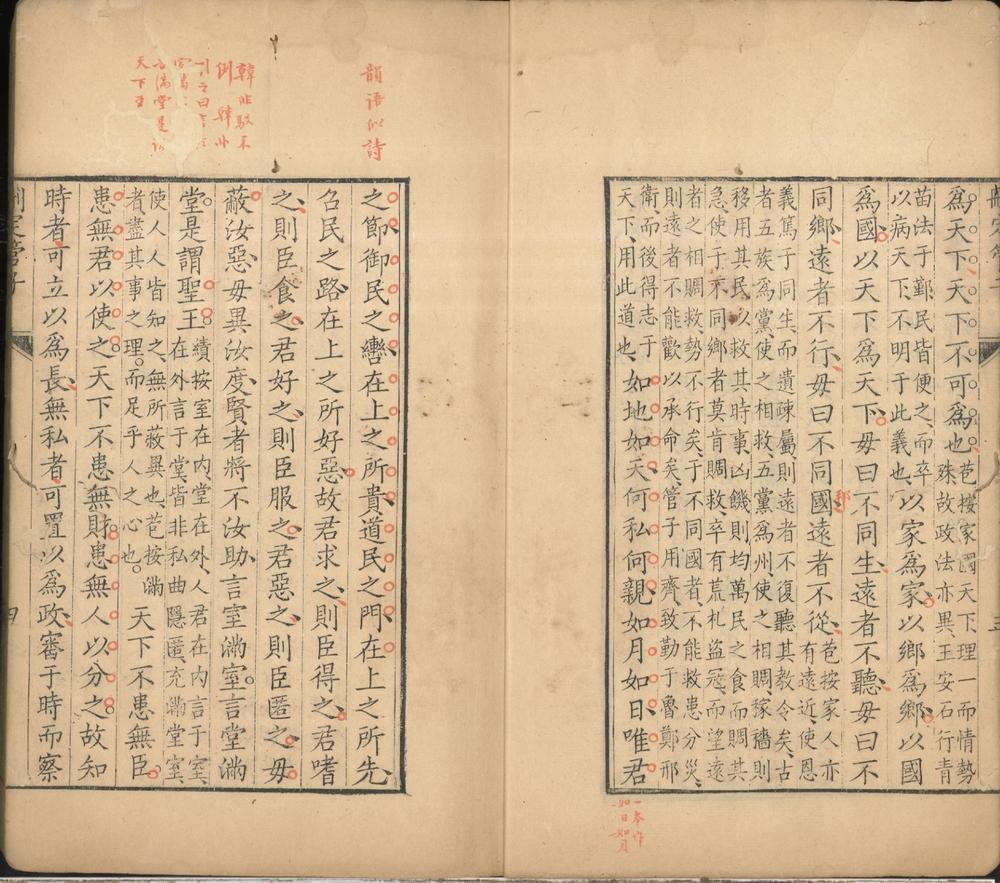 爲天下天下不可爲也
苞按家國天下理一而情勢
殊故政法亦異王安石行青
苗法于鄞民皆便之而卒
以病天下不明于此義也
以家爲家以鄉爲鄉以國
爲國以天下爲天下毋曰不同生遠者不聽毋曰不
同鄉遠者不行毋曰不同國遠者不從
邦
苞按家人亦
有遠近使恩
義篤于同生而遺疎屬則遠者不復聽其教令矣古
者五族爲黨使之相救五黨爲州使之相賙稼穡則
移用其民以救其時事凶饑則均萬民之食而賙其
急使于不同鄉者莫肯賙救卒有荒札盜寇而望遠
者之相賙救勢不行矣于不同國者不能救患分災
則遠者不能歡以承命矣管子用齊致勤于魯鄭邢
衛而後得志于
天下用此道也
如地如天何私何親如月如日唯君
一本作
如日如月
韻語似詩
之節御民之轡在上之所貴道民之門在上之所先
召民之路在上之所好惡故君求之則臣得之君嗜
之則臣食之君好之則臣服之君惡之則臣匿之毋
蔽汝惡毋異汝度賢者將不汝助言室滿室言堂滿
堂是謂聖王
續按室在內堂在外人君在內言于室
在外言于堂皆非私曲隱匿充滿堂室
使人人皆知之無所蔽異也苞按滿
者盡其事之理而足乎人之心也
天下不患無臣
患無君以使之天下不患無財患無人以分之故知
時者可立以爲長無私者可置以爲政審于時而察
刪定管子
四